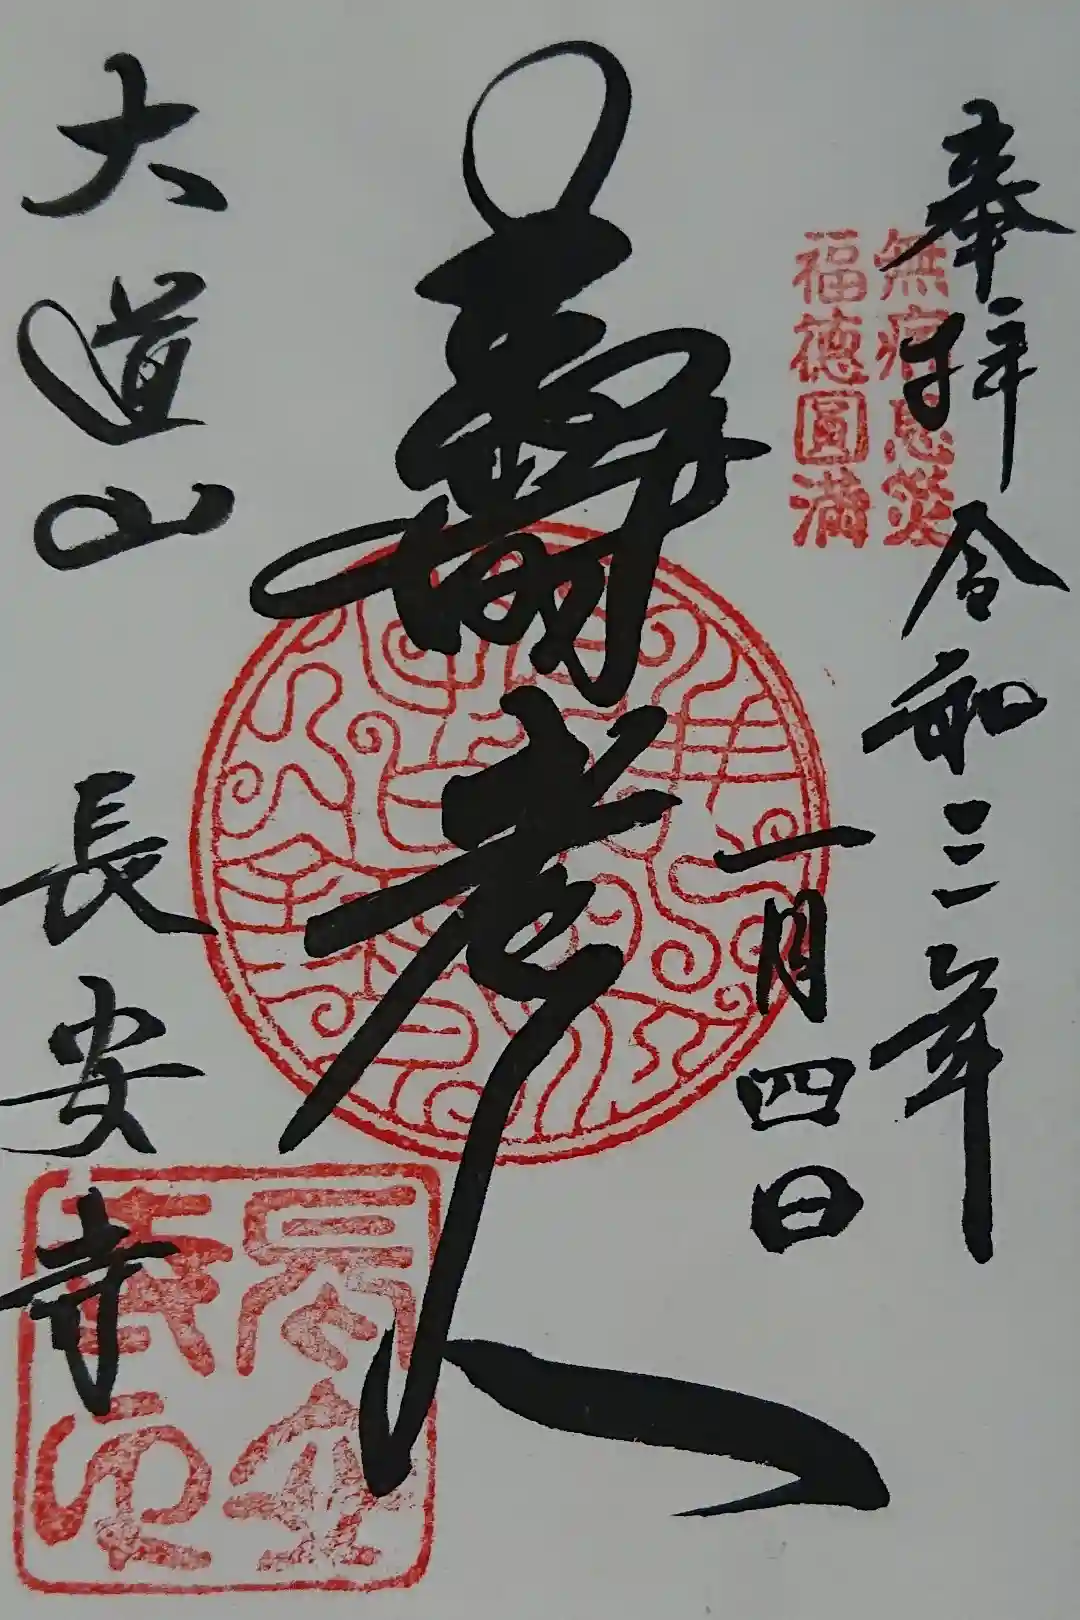 奉拝 令和三年
一月四日
無病息災
福徳圓満
壽老人
大道山 長安寺